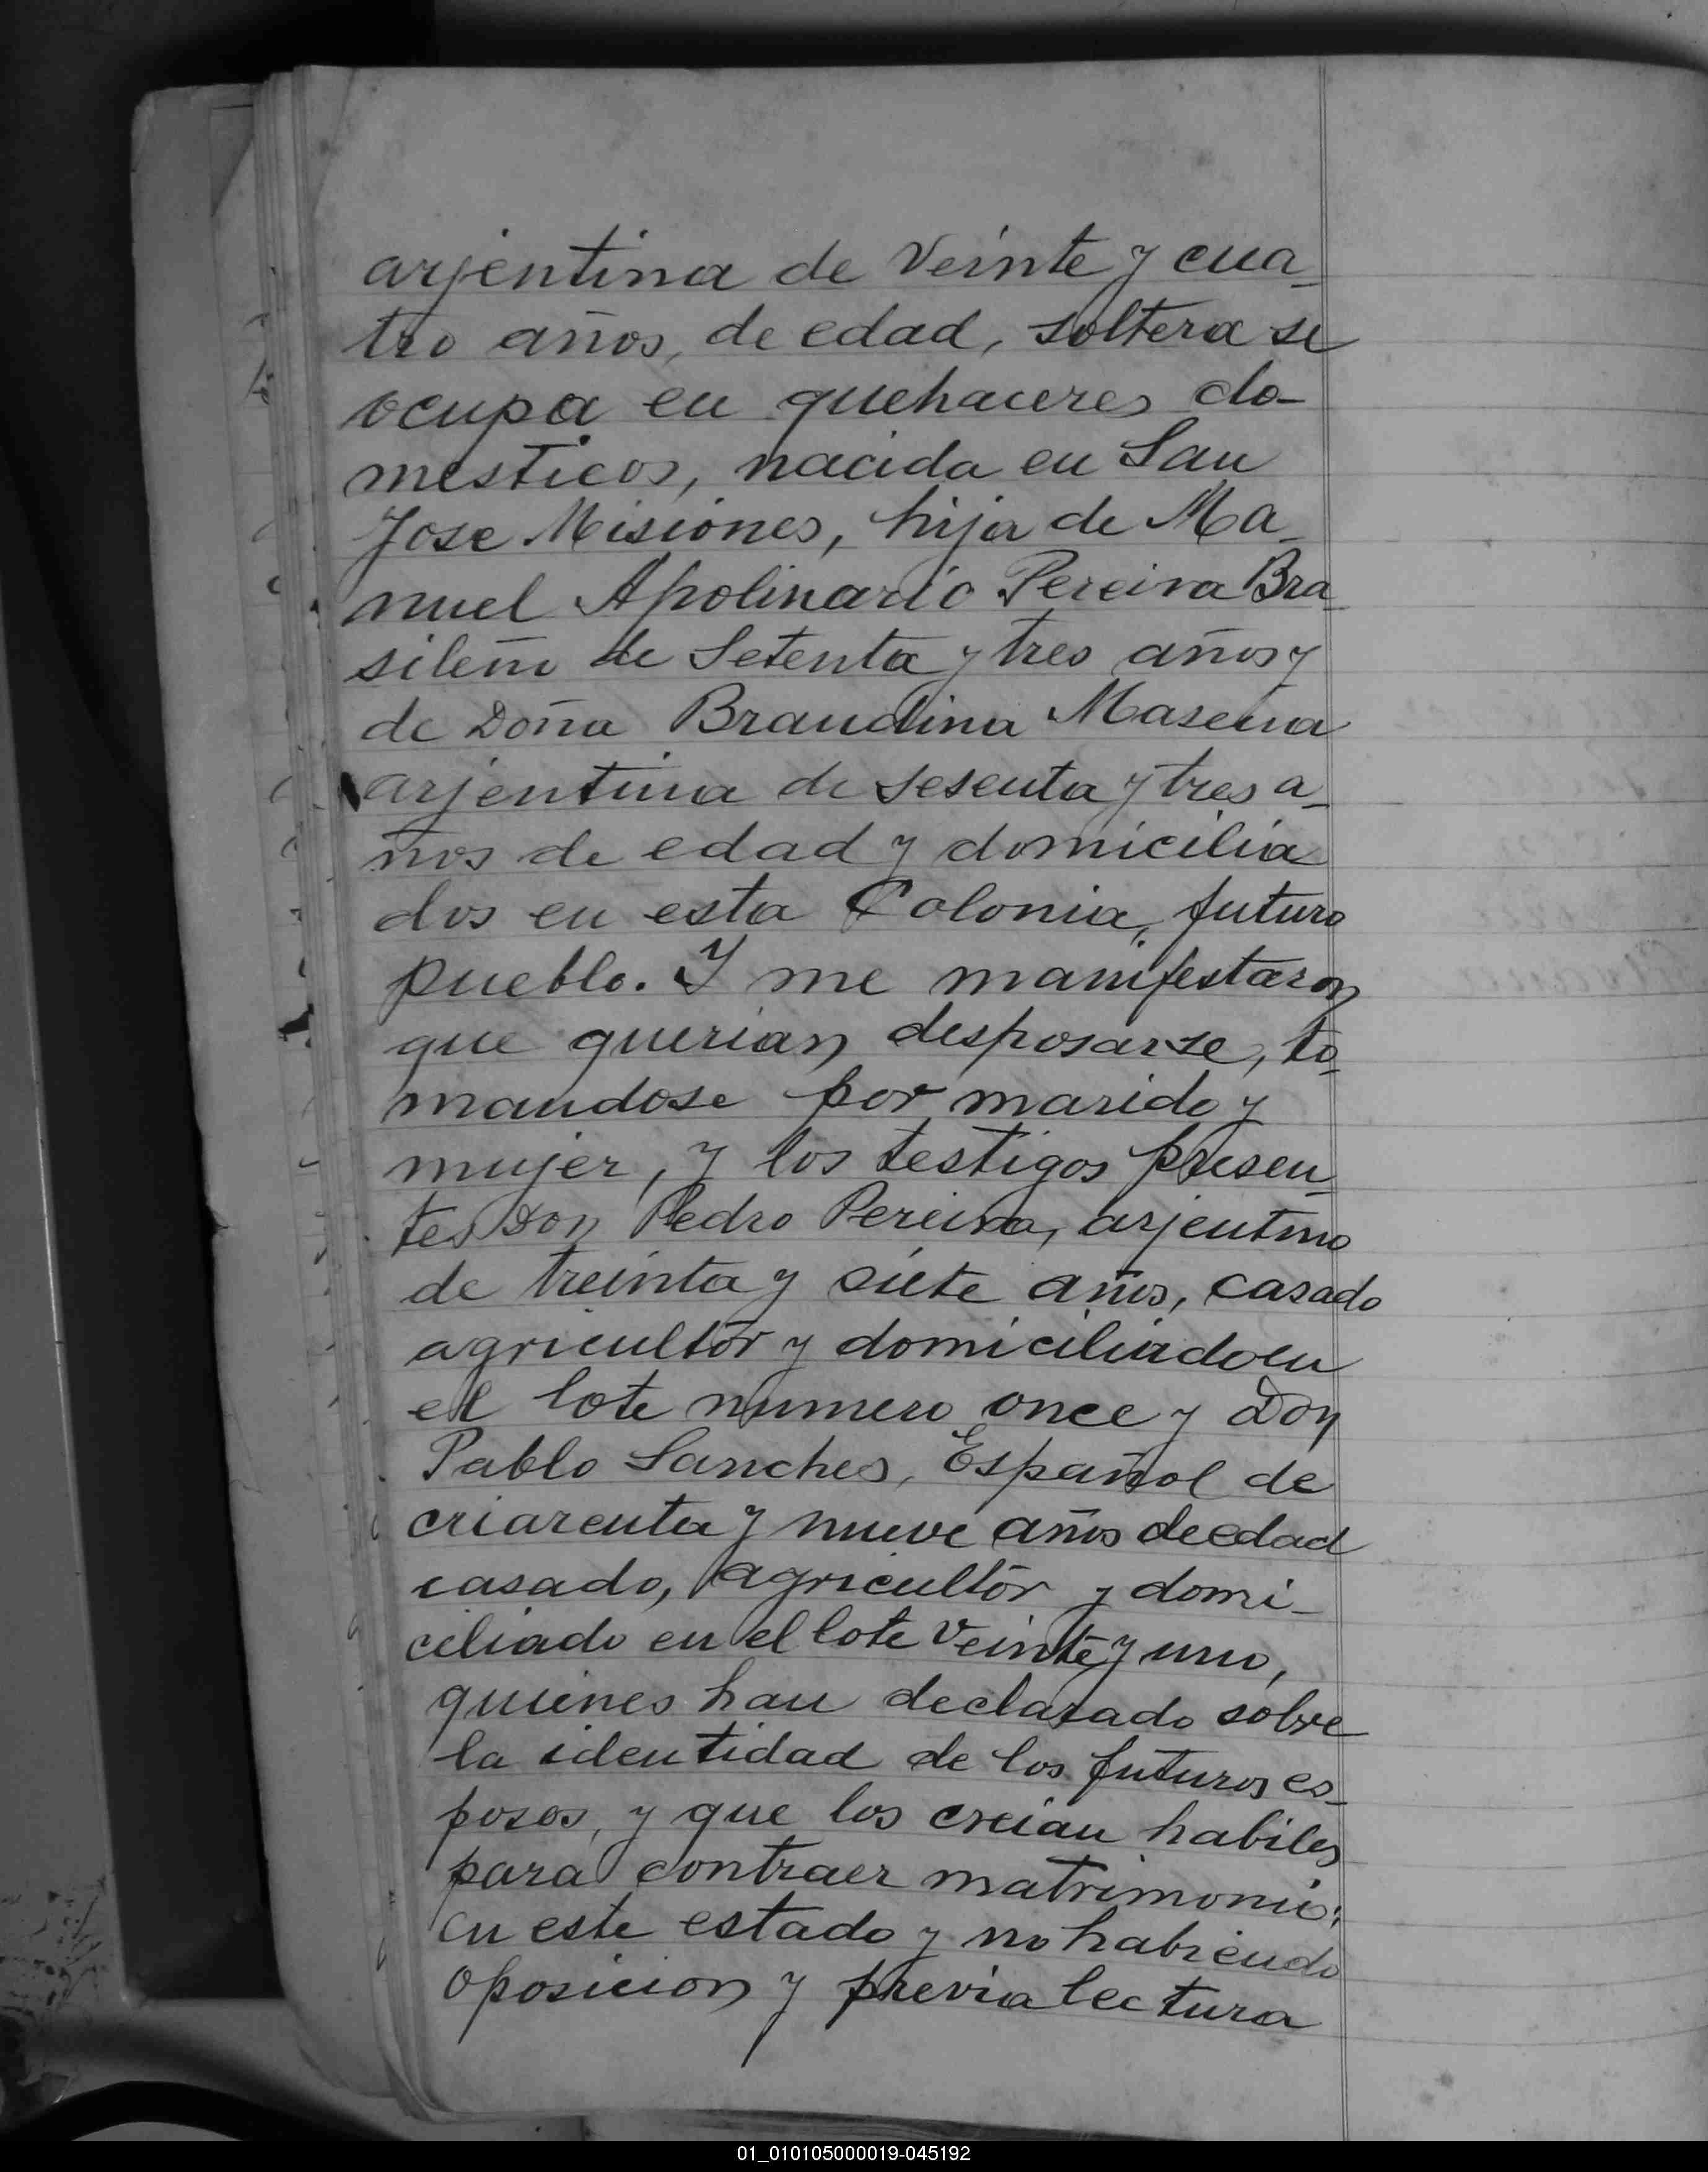 arjentina de Veinte y cua_
tro años, de edad, soltera se
ocupa en quehaceres do-
mesticos, nacida en San
Jose Misiones, hija de Ma_
nuel Apolinario Pereira Bra_
sileño de Setenta y tres años y
de Doña Braudina Masena
arjentina de sesenta y tres a_
ños de edad y domicilia
dos en esta Colonia, futuro
pueblo. Y me manifestaron
que querian desposarse, to_
mandose por marido y
mujer, y los testigos presen_
tes Don Pedro Pereira, arjentino
de treinta y siete años, casado
agricultor y domiciliado en
el lote numero once y Don
Pablo Sanches, Español de
criarenta y nueve años de edad
casado, agricultor y domi_
ciliado en el lote Veinte y uno,
quienes han declarado sobre
la identidad de los futuros es_
posos, y que los creian habiles
para contraer matrimonio;
en este estado y no habiendo
oposicion y previa lectura
01_010105000019-045192